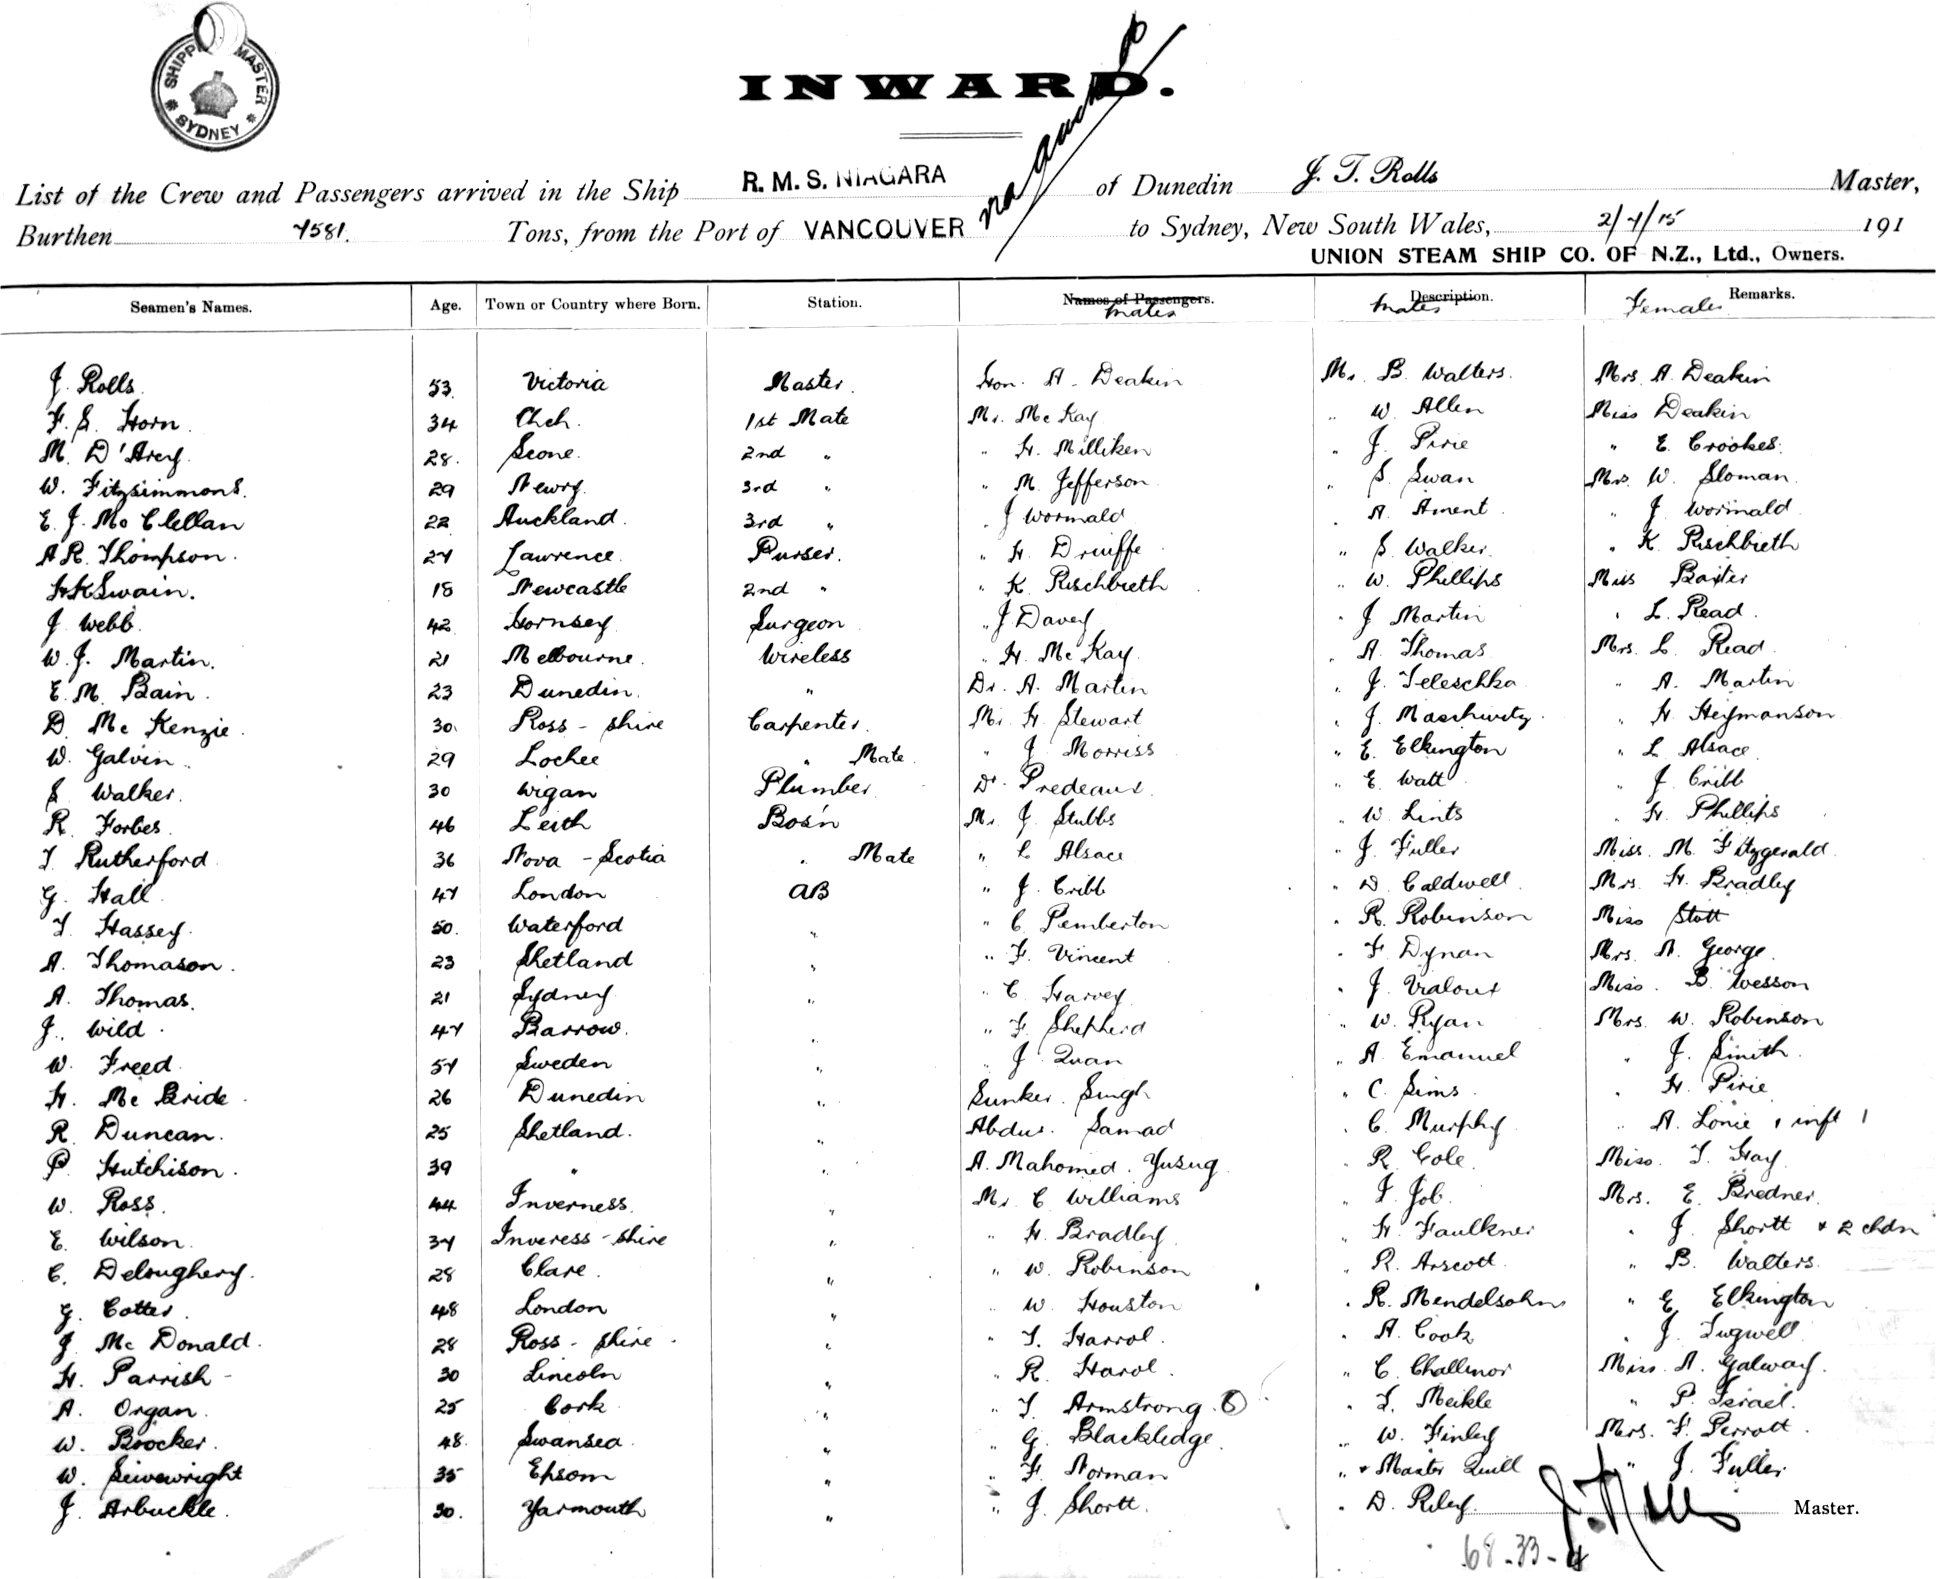 SHIPPING MASTER
* SYDNEY *
INWARD.
via Auckland
List of the Crew and Passengers arrived in the Ship R. M. S. NIAGARA of Dunedin J. T. Rolls Master,
Burthen 7581. Tons, from the Port of VANCOUVER to Sydney, New South Wales, 2/7/15 191
UNION STEAM SHIP CO. OF N.Z., Ltd., Owners.
Seamen's Names. Age. Town or Country where Born. Station. Names of Passengers. Males Description. Males Remarks. Females
J. Rolls 53 Victoria Master. Hon. A. Deakin Mr. B. Walters. Mrs A. Deakin
F. S. Horn. 34 Chch. 1st Mate Mr. McKay " W. Allen Miss Deakin
M. D'Arcy. 28. Scone. 2nd " " H. Milliken " J. Pirie " E. Crookes.
W. Fitzsimmons. 29 Newry. 3rd " " M. Jefferson " S. Swan Mrs. W. Sloman
E. J. McClellan 22 Auckland. 3rd " " J Wormald " A. Ament " J. Wormald
A R. Thompson. 27 Lawrence. Purser. " H. Druiffe " S. Walker. " K. Rischbieth
H K Swain. 18 Newcastle 2nd " " K. Rischbieth " W. Phillips Miss Baxter
J Webb. 42 Hornsey Surgeon " J Davey " J Martin " L. Read.
W. J. Martin. 21 Melbourne. Wireless " H. McKay " A. Thomas Mrs. L. Read
E. M. Bain. 23 Dunedin. " Dr. A. Martin " J. Teleschka " A. Martin
D. McKenzie 30. Ross-shire Carpenter. Mr. H. Stewart " J. Maschwitz. " H. Heymanson
W. Galvin. 29 Lochee " Mate " J. Morriss " E. Elkington " L Alsace
S Walker. 30 Wigan Plumber Dr. Predeaux. " E. Watt " J Cribb
R. Forbes. 46 Leith Bos'n Mr. J. Stubbs " W. Lints " H. Phillips
T Rutherford 36 Nova-Scotia " Mate " L Alsace " J. Fuller Miss. M. Fitzgerald
G. Hall 47 London AB " J. Cribb " D. Caldwell Mrs. H. Bradley
T. Hassey. 50. Waterford " " C Pemberton " R. Robinson Miss Stott
A. Thomason. 23 Shetland " " F. Vincent " F. Dynan Mrs. A. George
A. Thomas. 21 Sydney " " C. Harvey " J. Vialoux Miss. B. Wesson
J. Wild. 47 Barrow. " " F. Shepherd " W. Ryan Mrs. W. Robinson
W. Freed. 57 Sweden " " J Quan " A. Emanuel " J. Smith.
H. McBride. 26 Dunedin " Sunker. Singh " C. Sims. " H. Pirie
R. Duncan. 25 Shetland. " Abdus. Samad " C. Murphy " A. Lonie & inft 1
P. Hutchison. 39 " " A. Mahomed. Yusug " R. Cole. Miss. T. Hay.
W. Ross. 44 Inverness. " Mr. C Williams " T. Job. Mrs. E. Bredner.
E. Wilson. 37 Inveress-shire " " H. Bradley " H. Faulkner " J. Shortt & 2 chdn
C. Deloughery. 28 Clare. " " W. Robinson " R. Arscott " B. Walters.
G. Cotter. 48 London " " W. Houston " R. Mendelsohn " E. Elkington
J. McDonald. 28 Ross-shire. " " T. Harrol. " A. Cook " J. Tugwell
H. Parrish 30 Lincoln " " R. Harol. " C. Challinor Miss. A. Galway.
A. Organ. 25 Cork " " T. Armstrong. " T. Meikle " P. Israel.
W. Broocker. 48. Swansea. " " G. Blackledge. " W. Finley Mrs. F. Perrott.
W. Seivewright 35 Epsom " " F. Norman " & Master Quill " J. Fuller
J. Arbuckle. 30. Yarmouth " " J. Shortt. " D. Riley. J. T. Rolls Master.
68-33-4